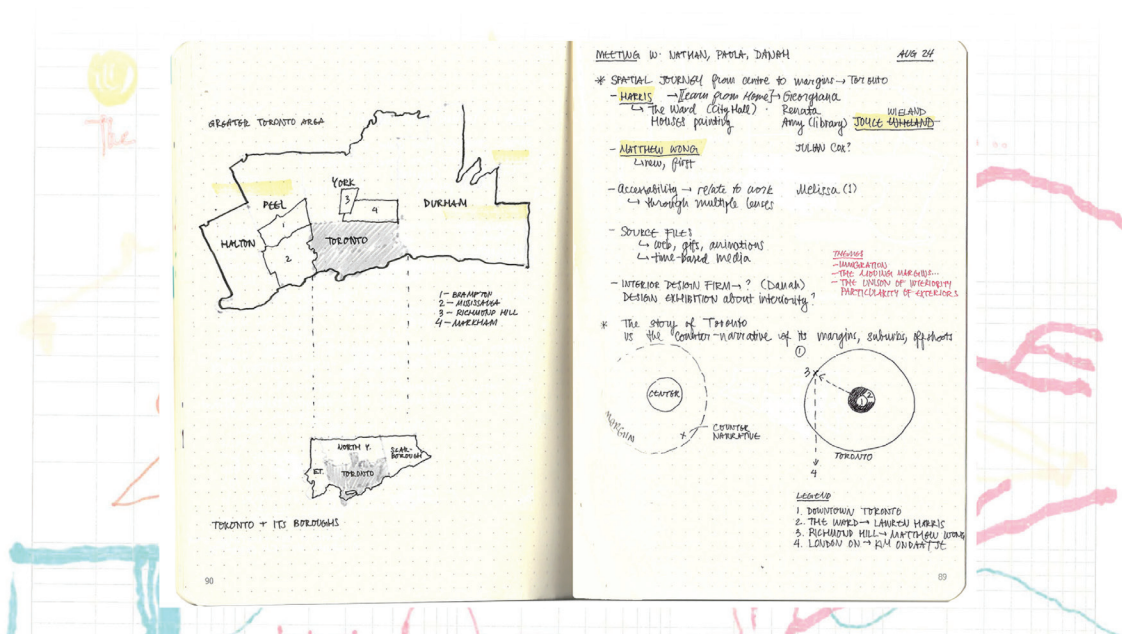 The
GREATER TORONTO AREA
YORK
3
4
PEEL
1
DURHAM
HALTON
2
TORONTO
1 – BRAMPTON
2 – MISSISSAUGA
3 – RICHMOND HILL
4 – MARKHAM
NORTH Y.
SCAR-
BOROUGH
ET.
TORONTO
TORONTO + ITS BOROUGHS
90
MEETING W. NATHAN, PAOLA, DANAH
AUG 24
* SPATIAL JOURNEY from centre to margins → Toronto
– HARRIS → [Learn from Home] → Georgiana
↳ The Ward (City Hall) · Renata
WIELAND
Houses painting Amy (library) JOYCE WHIELAND
– MATTHEW WONG JULIAN COX?
↳ new, first
– Accessability → relate to work Melissa (1)
↳ through multiple lenses
– SOURCE FILES
↳ web, gifs, animations
↳ time-based media
THEMES
– IMMIGRATION
– THE ADDING MARGINS...
– THE UNISON OF INTERIORITY
PARTICULARITY OF EXTERIORS
– INTERIOR DESIGN FIRM → ? (Danah)
DESIGN EXHIBITION about interiority?
* The story of Toronto
vs the counter-narrative of its margins, suburbs, offshoots
CENTER
MARGIN
COUNTER
NARRATIVE
1
3
2
1
TORONTO
4
LEGEND
1. DOWNTOWN TORONTO
2. THE WARD → LAWREN HARRIS
3. RICHMOND HILL → MATTHEW WONG
4. LONDON ON → KIM ONDAATJE
89